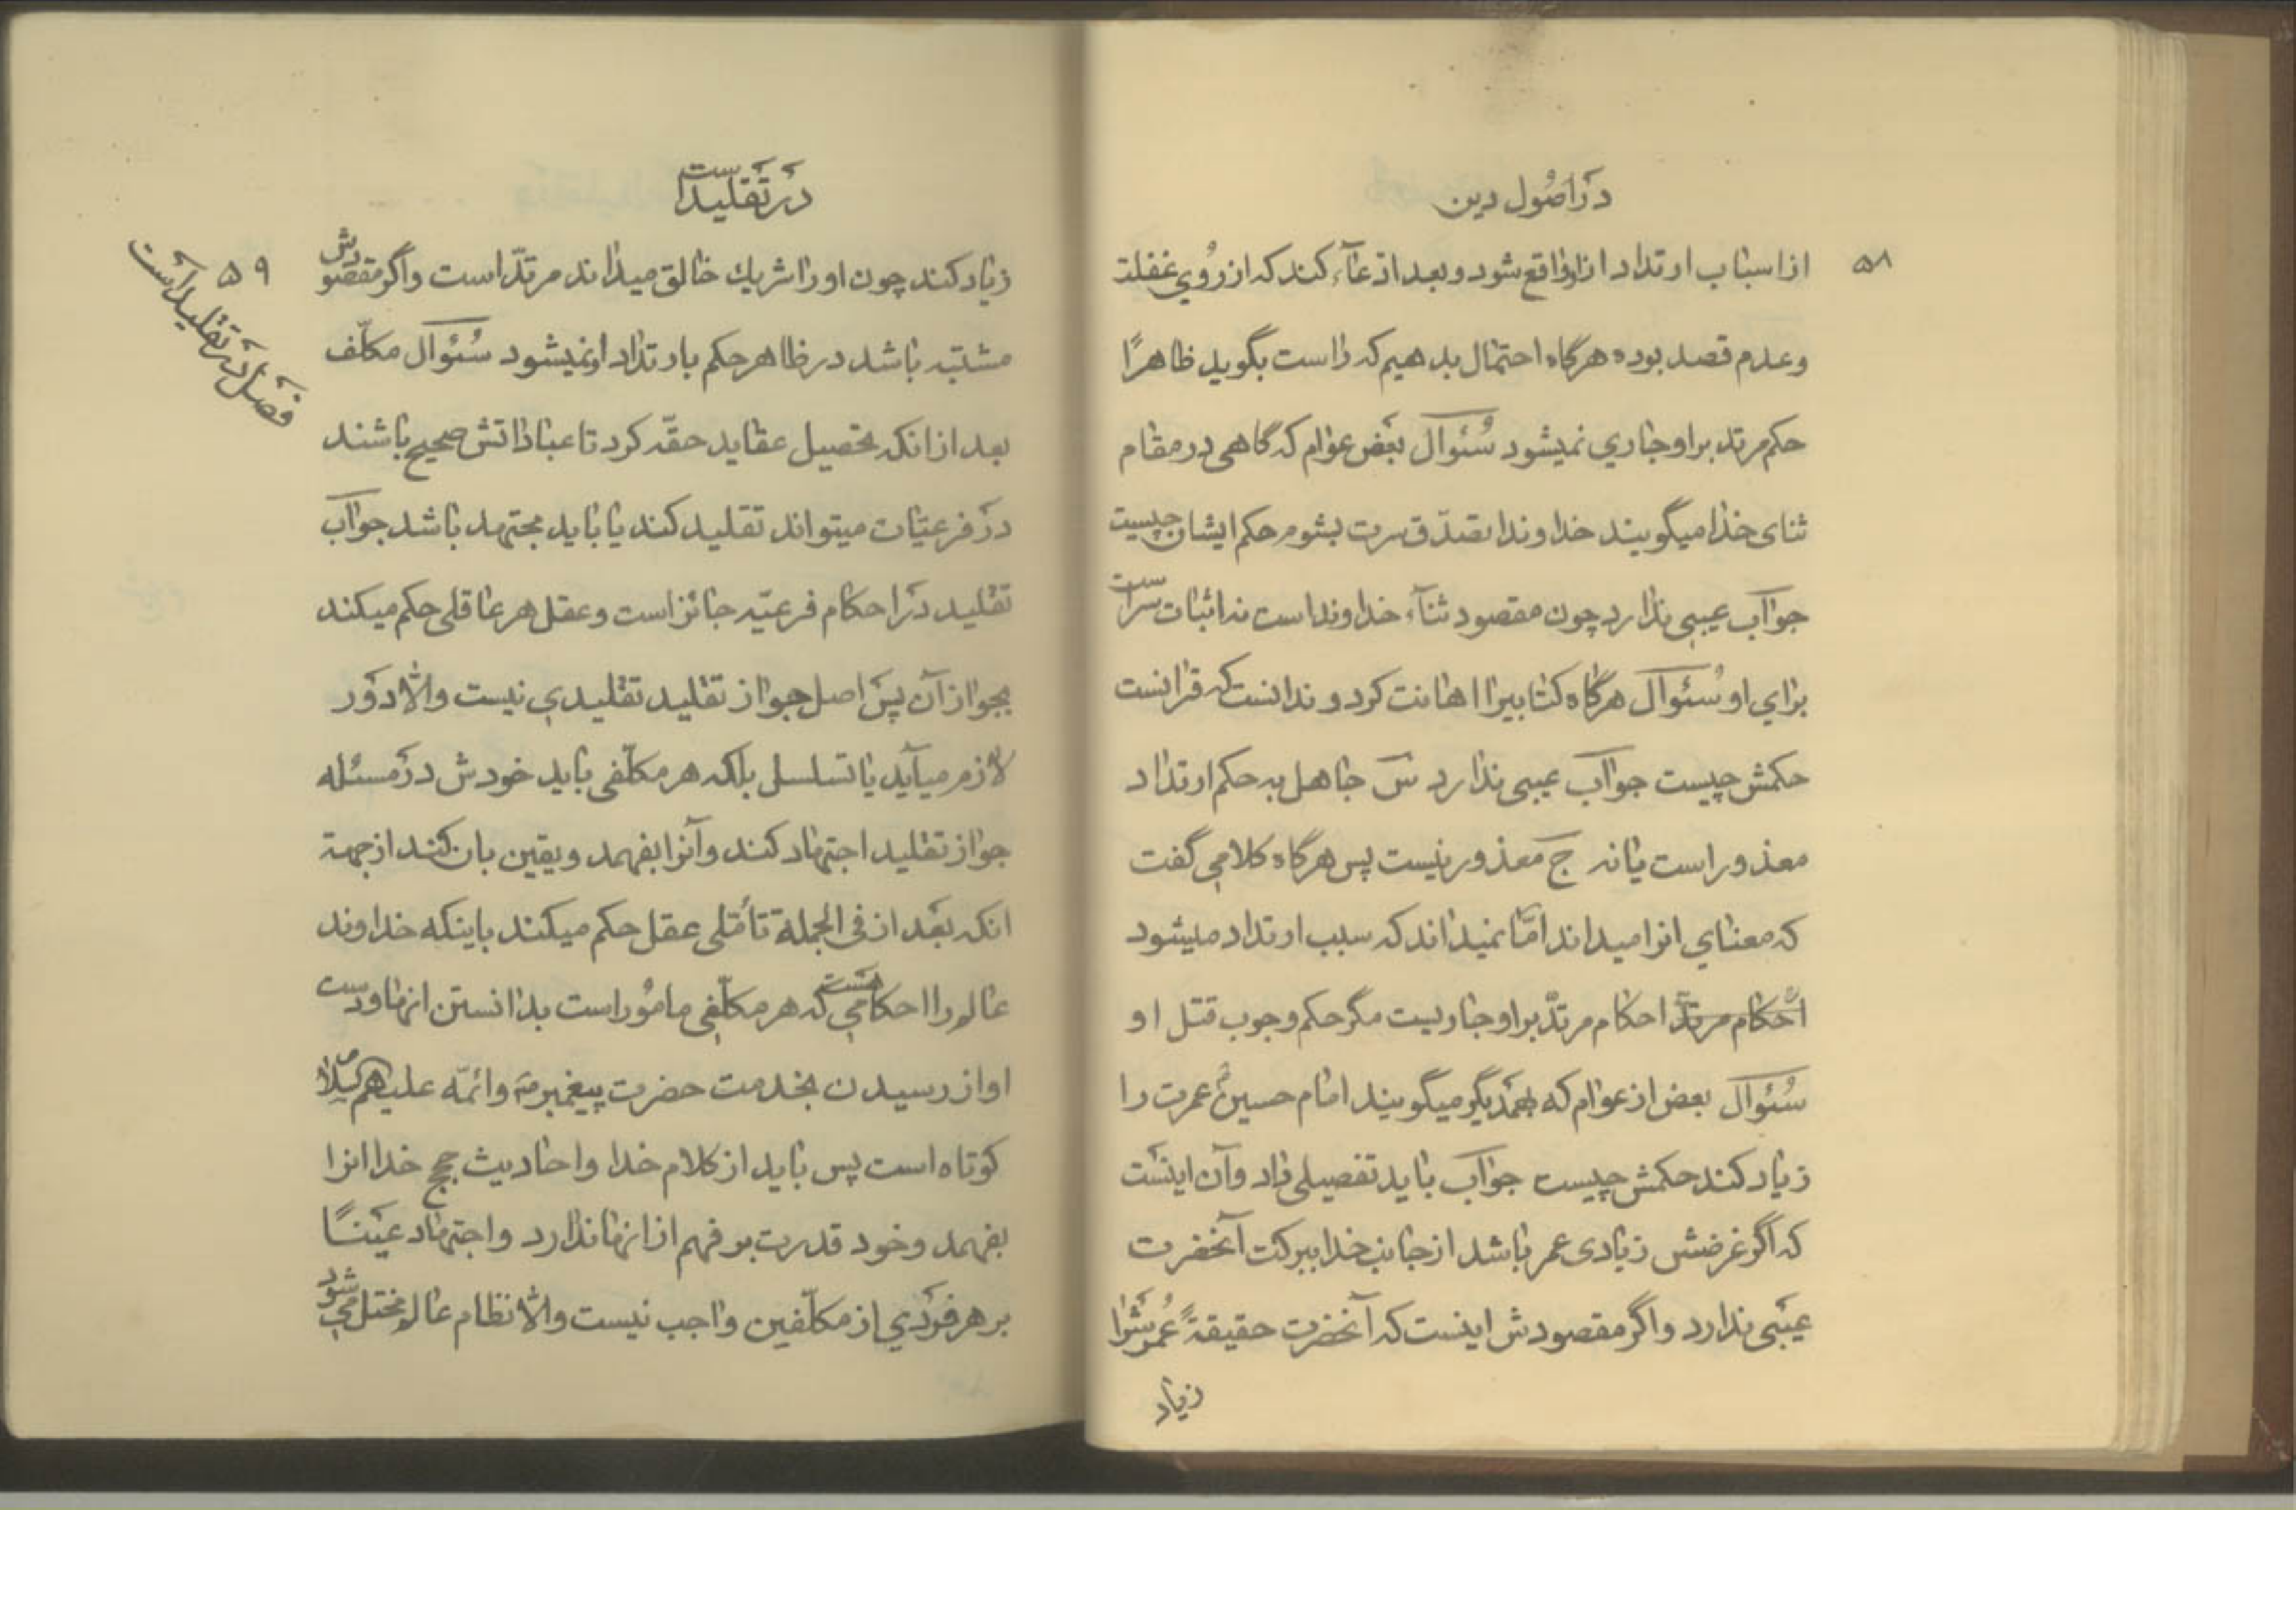 در اصول دین
۵۸
از اسباب ارتداد از او واقع شود و بعد ادعاء کند که از روی غفلت
و عدم قصد بوده هرگاه احتمال بدهیم که راست بگوید ظاهرًا
حکم مرتد بر او جاری نمیشود سُئوال بعض عوام که گاهی در مقام
ثنای خدا میگویند خداوندا تصدّق سرت بشوم حکم ایشان چیست
جواب عیبی ندارد چون مقصود ثنآء خداوند است نه اثبات سر است
برای او سُئوال هرگاه کتابیرا اهانت کرد و ندانست که قرانست
حکمش چیست جواب عیبی ندارد س جاهل به حکم ارتداد
معذور است یا نه ج معذور نیست پس هرگاه کلامی گفت
که معنای انرا میداند امّا نمیداند که سبب ارتداد میشود
احکام مرتدّ احکام مرتدّ بر او جاریست مگر حکم وجوب قتل او
سُئوال بعض از عوام که بهمدیگر میگویند امام حسین ع عمرت را
زیاد کند حکمش چیست جواب باید تفصیلی داد و آن اینست
که اگر غرضش زیادی عمر باشد از جانب خدا ببرکت آنحضرت
عیبی ندارد و اگر مقصودش اینست که آنحضرت حقیقةً عُمرش را
زیاد
در تقلید است
۵۹
فصل در تقلید است
زیاد کند چون او را شریك خالق میداند مرتدّ است و اگر مقصودش
مشتبه باشد در ظاهر حکم بارتداد او نمیشود سُئوال مکلّف
بعد از انکه تحصیل عقاید حقّه کرد تا عباداتش صحیح باشند
در فرعیّات میتواند تقلید کند یا باید مجتهد باشد جواب
تقلید در احکام فرعیّه جائز است و عقل هر عاقلی حکم میکند
بجواز آن پس اصل جواز تقلید تقلیدی نیست والّا دَور
لازم میآید یا تسلسل بلکه هر مکلّفی باید خودش در مسئله
جواز تقلید اجتهاد کند و آنرا بفهمد و یقین بان کند از جهة
انکه بعد از فی الجملة تأمّلی عقل حکم میکند باینکه خداوند
عالم را احکامی هست که هر مکلّفی مامُور است بدانستن انها و دست
او از رسیدن بخدمت حضرت پیغمبر ص و ائمّه علیهم السلام
کوتاه است پس باید از کلام خدا و احادیث حجج خدا انرا
بفهمد و خود قدرت بر فهم از انها ندارد و اجتهاد عینًا
بر هر فردی از مکلّفین واجب نیست والّا نظام عالم مختل می شود